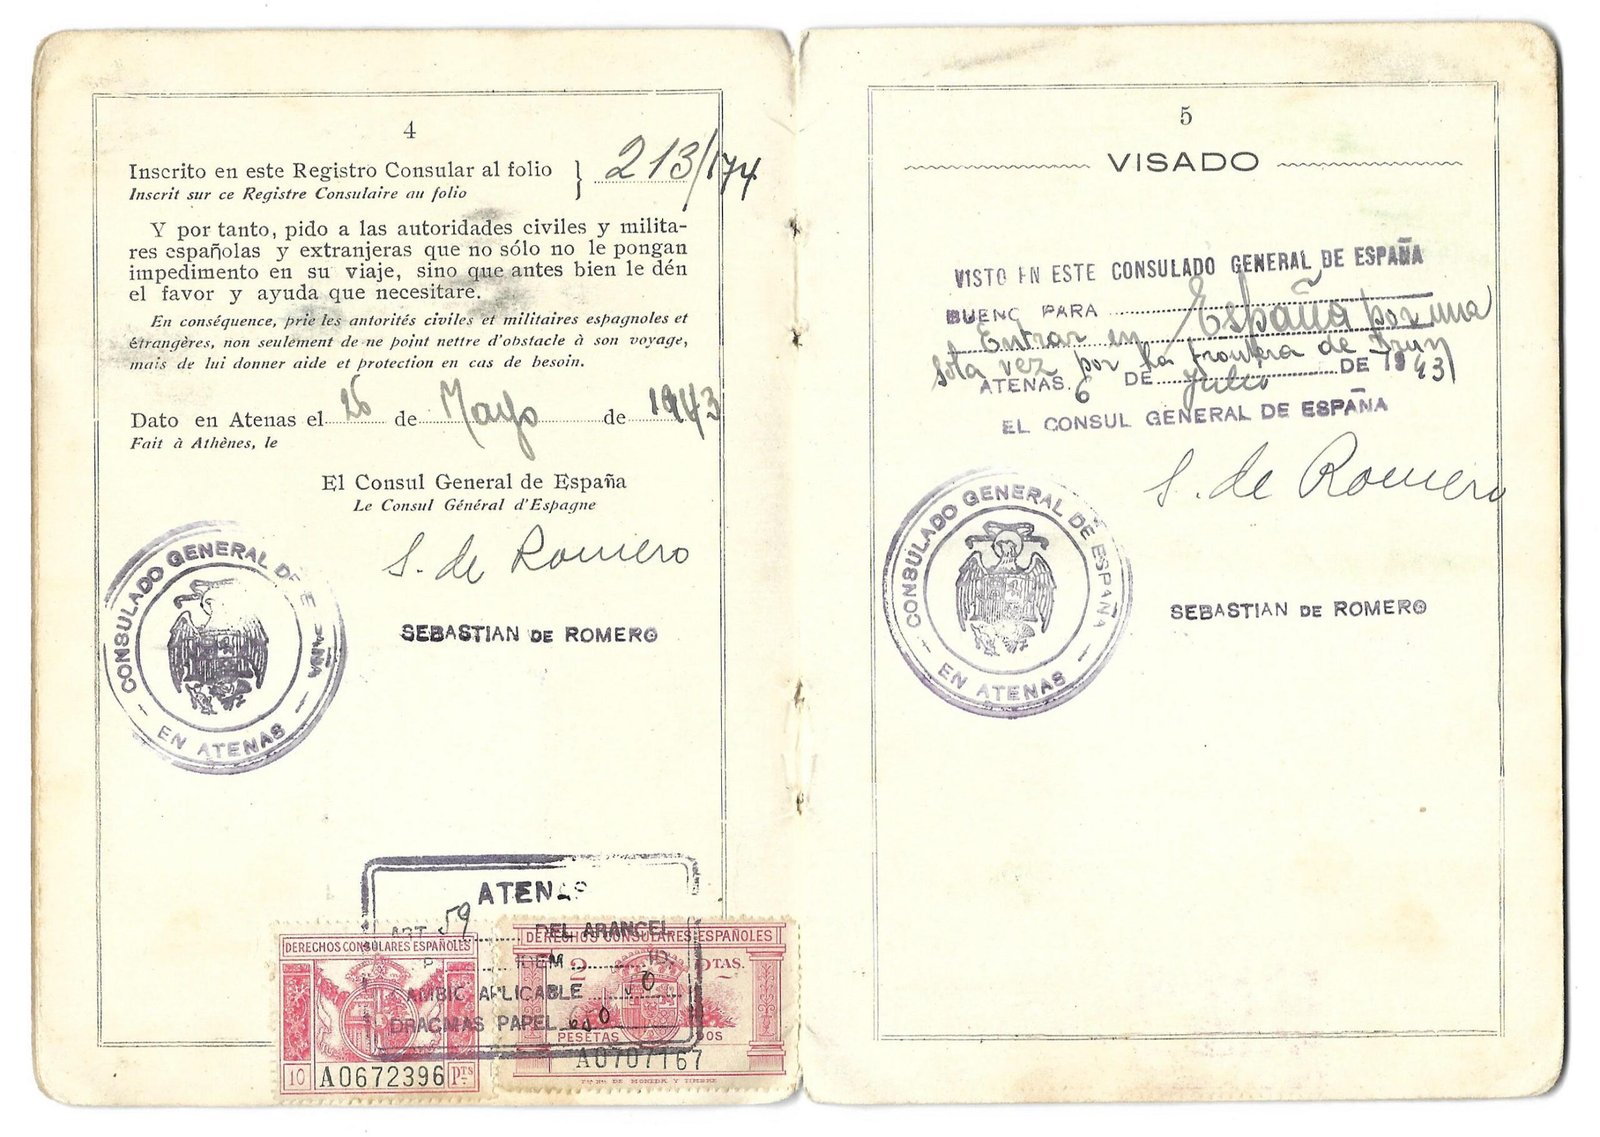 4
Inscrito en este Registro Consular al folio } 213/174
Inscrit sur ce Registre Consulaire au folio
Y por tanto, pido a las autoridades civiles y milita-
res españolas y extranjeras que no sólo no le pongan
impedimento en su viaje, sino que antes bien le dén
el favor y ayuda que necesitare.
En conséquence, prie les antorités civiles et militaires espagnoles et
étrangères, non seulement de ne point nettre d'obstacle à son voyage,
mais de lui donner aide et protection en cas de besoin.
Dato en Atenas el 26 de Mayo de 1943
Fait à Athènes, le
El Consul General de España
Le Consul Général d'Espagne
S. de Romero
SEBASTIAN DE ROMERO
CONSULADO GENERAL DE ESPAÑA
EN ATENAS
ATENAS
ART 59 DEL ARANCEL
IDEM ID.
CAMBIO APLICABLE
DRACMAS PAPEL
DERECHOS CONSULARES ESPAÑOLES
10 A0672396 PTS
DERECHOS CONSULARES ESPAÑOLES
2 PTAS.
PESETAS DOS
A0707167
Fca Nal DE MONEDA Y TIMBRE
5
VISADO
VISTO EN ESTE CONSULADO GENERAL DE ESPAÑA
BUENO PARA
Entrar en España por una
sola vez por la frontera de Irun
ATENAS 6 DE Julio DE 1943
EL CONSUL GENERAL DE ESPAÑA
S. de Romero
CONSULADO GENERAL DE ESPAÑA
EN ATENAS
SEBASTIAN DE ROMERO